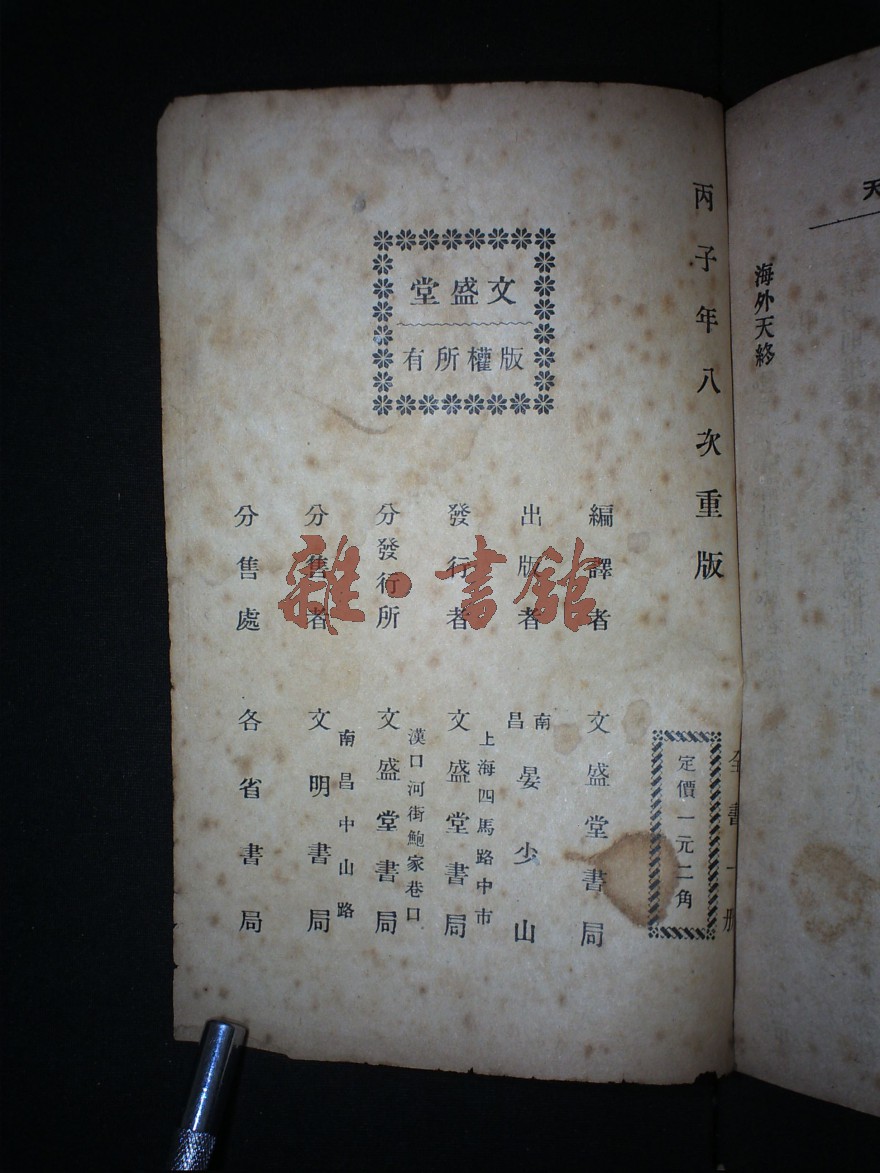 天
海外天終
丙子年八次重版
全書一冊
定價一元二角
文盛堂
版權所有
編譯者 文盛堂書局
出版者 南昌晏少山
發行者 上海四馬路中市 文盛堂書局
分發行所 漢口河街鮑家巷口 文盛堂書局
分售者 南昌中山路 文明書局
分售處 各省書局
雜·書館